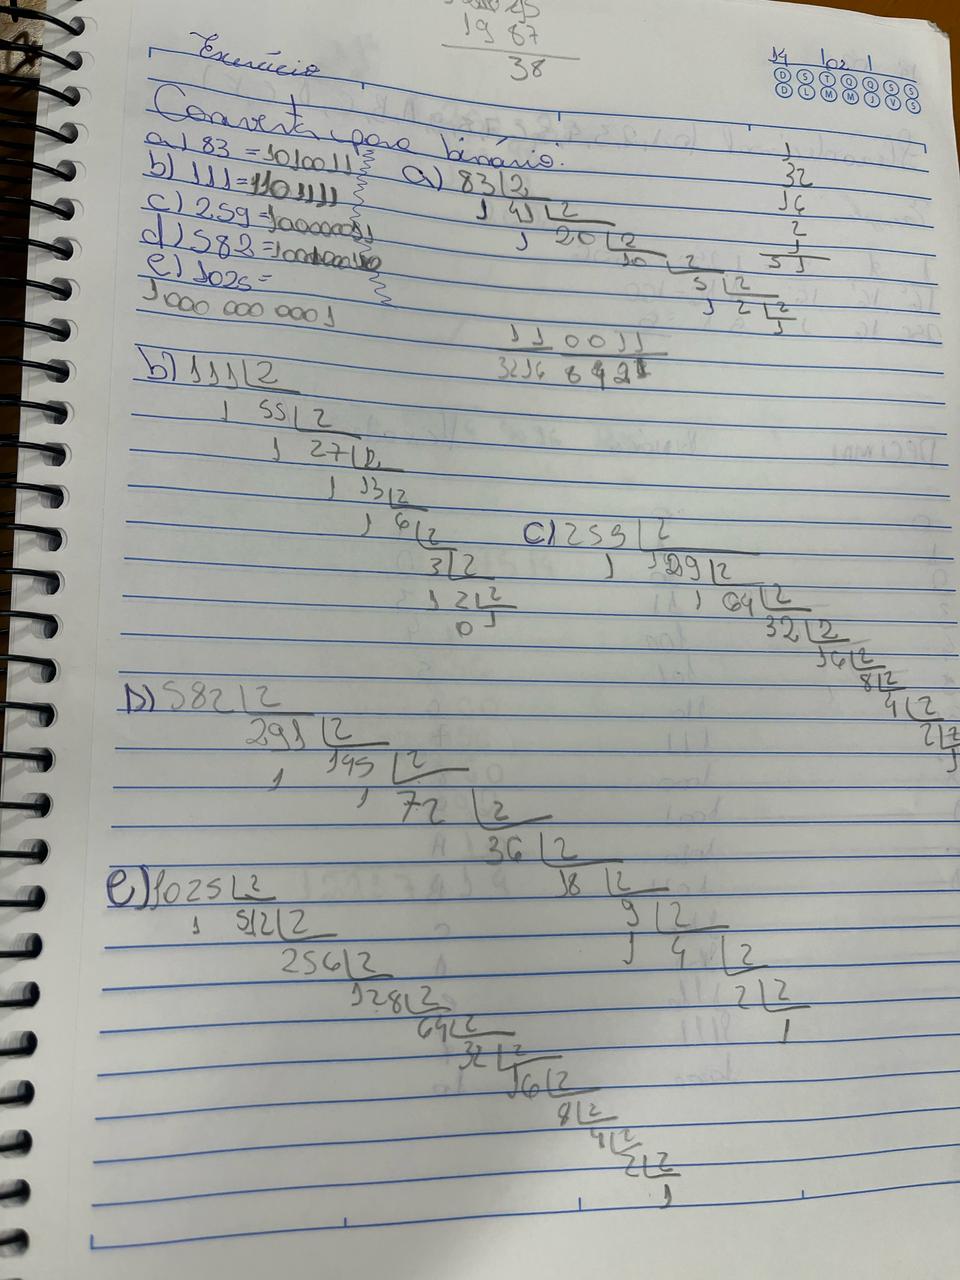 45
19 87
38
Exercício
14 02
D S T Q Q S S
D L M M J V S
Converta para binário:
a) 83 = 1010011
b) 111 = 1101111
c) 259 = 100000011
d) 582 =
e) 1025 =
1000 000 0001
a) 83 2
1 41 2
1 20 2
10 2
5 2
1 2 2
1
1
32
16
2
1
51
1 1 0 0 1 1
32 16 8 4 2 1
b) 111 2
1 55 2
1 27 2
1 13 2
1 6 2
3 2
1 2 2
0 1
c) 259 2
1 129 2
1 64 2
32 2
16 2
8 2
4 2
2 2
1
D) 582 2
291 2
1 145 2
1 72 2
36 2
18 2
9 2
1 4 2
2 2
1
e) 1025 2
1 512 2
256 2
128 2
64 2
32 2
16 2
8 2
4 2
2 2
1